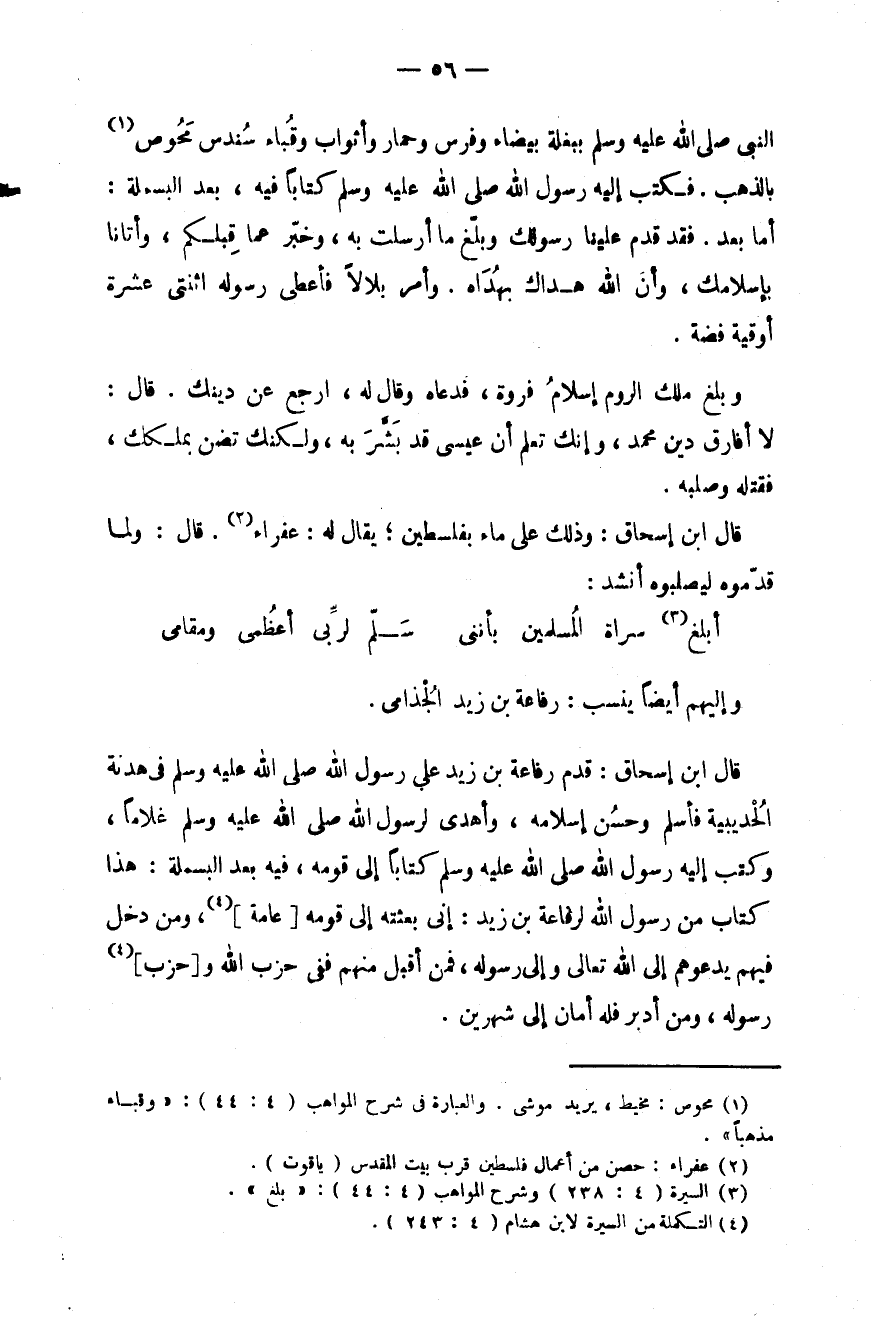 — ٥٦ —
النبى صلى الله عليه وسلم ببغلة بيضاء وفرس وحمار وأثواب وقُباء سُندس مَحُوص(١)
بالذهب . فكتب إليه رسول الله صلى الله عليه وسلم كتاباً فيه ، بعد البسملة :
أما بعد . فقد قدم علينا رسولك وبلّغ ما أرسلت به ، وخبّر عما قِبلكم ، وأتانا
بإسلامك ، وأنَ الله هداك بهُدَاه . وأمر بلالاً فأعطى رسوله اثنتى عشرة
أوقية فضة .
وبلغ ملك الروم إسلامُ فروة ، فدعاه وقال له ، ارجع عن دينك . قال :
لا أفارق دين محمد ، وإنك تعلم أن عيسى قد بَشَّرَ به ، ولكنك تضن بملكك ،
فقتله وصلبه .
قال ابن إسحاق : وذلك على ماء بفلسطين ؛ يقال له : عفراء(٢) . قال : ولما
قدّموه ليصلبوه أنشد :
أبلغ(٣) سراة المُسلمين بأننى سَلّم لربِّى أعظُمى ومقامى
وإليهم أيضاً ينسب : رفاعة بن زيد الجُذامى .
قال ابن إسحاق : قدم رفاعة بن زيد علي رسول الله صلى الله عليه وسلم فى هدنة
الحُديبية فأسلم وحسُن إسلامه ، وأهدى لرسول الله صلى الله عليه وسلم غلاماً ،
وكتب إليه رسول الله صلى الله عليه وسلم كتاباً إلى قومه ، فيه بعد البسملة : هذا
كتاب من رسول الله لرفاعة بن زيد : إنى بعثته إلى قومه [ عامة ](٤) ، ومن دخل
فيهم يدعوهم إلى الله تعالى وإلى رسوله ، فمن أقبل منهم ففى حزب الله و[حزب](٤)
رسوله ، ومن أدبر فله أمان إلى شهرين .
(١) محوص : مخيط ، يريد موشى . والعبارة فى شرح المواهب ( ٤ : ٤٤ ) : « وقباء
مذهباً » .
(٢) عفراء : حصن من أعمال فلسطين قرب بيت المقدس ( ياقوت ) .
(٣) السيرة ( ٤ : ٢٣٨ ) وشرح المواهب ( ٤ : ٤٤ ) : « بلغ » .
(٤) التكملة من السيرة لابن هشام ( ٤ : ٢٤٣ ) .